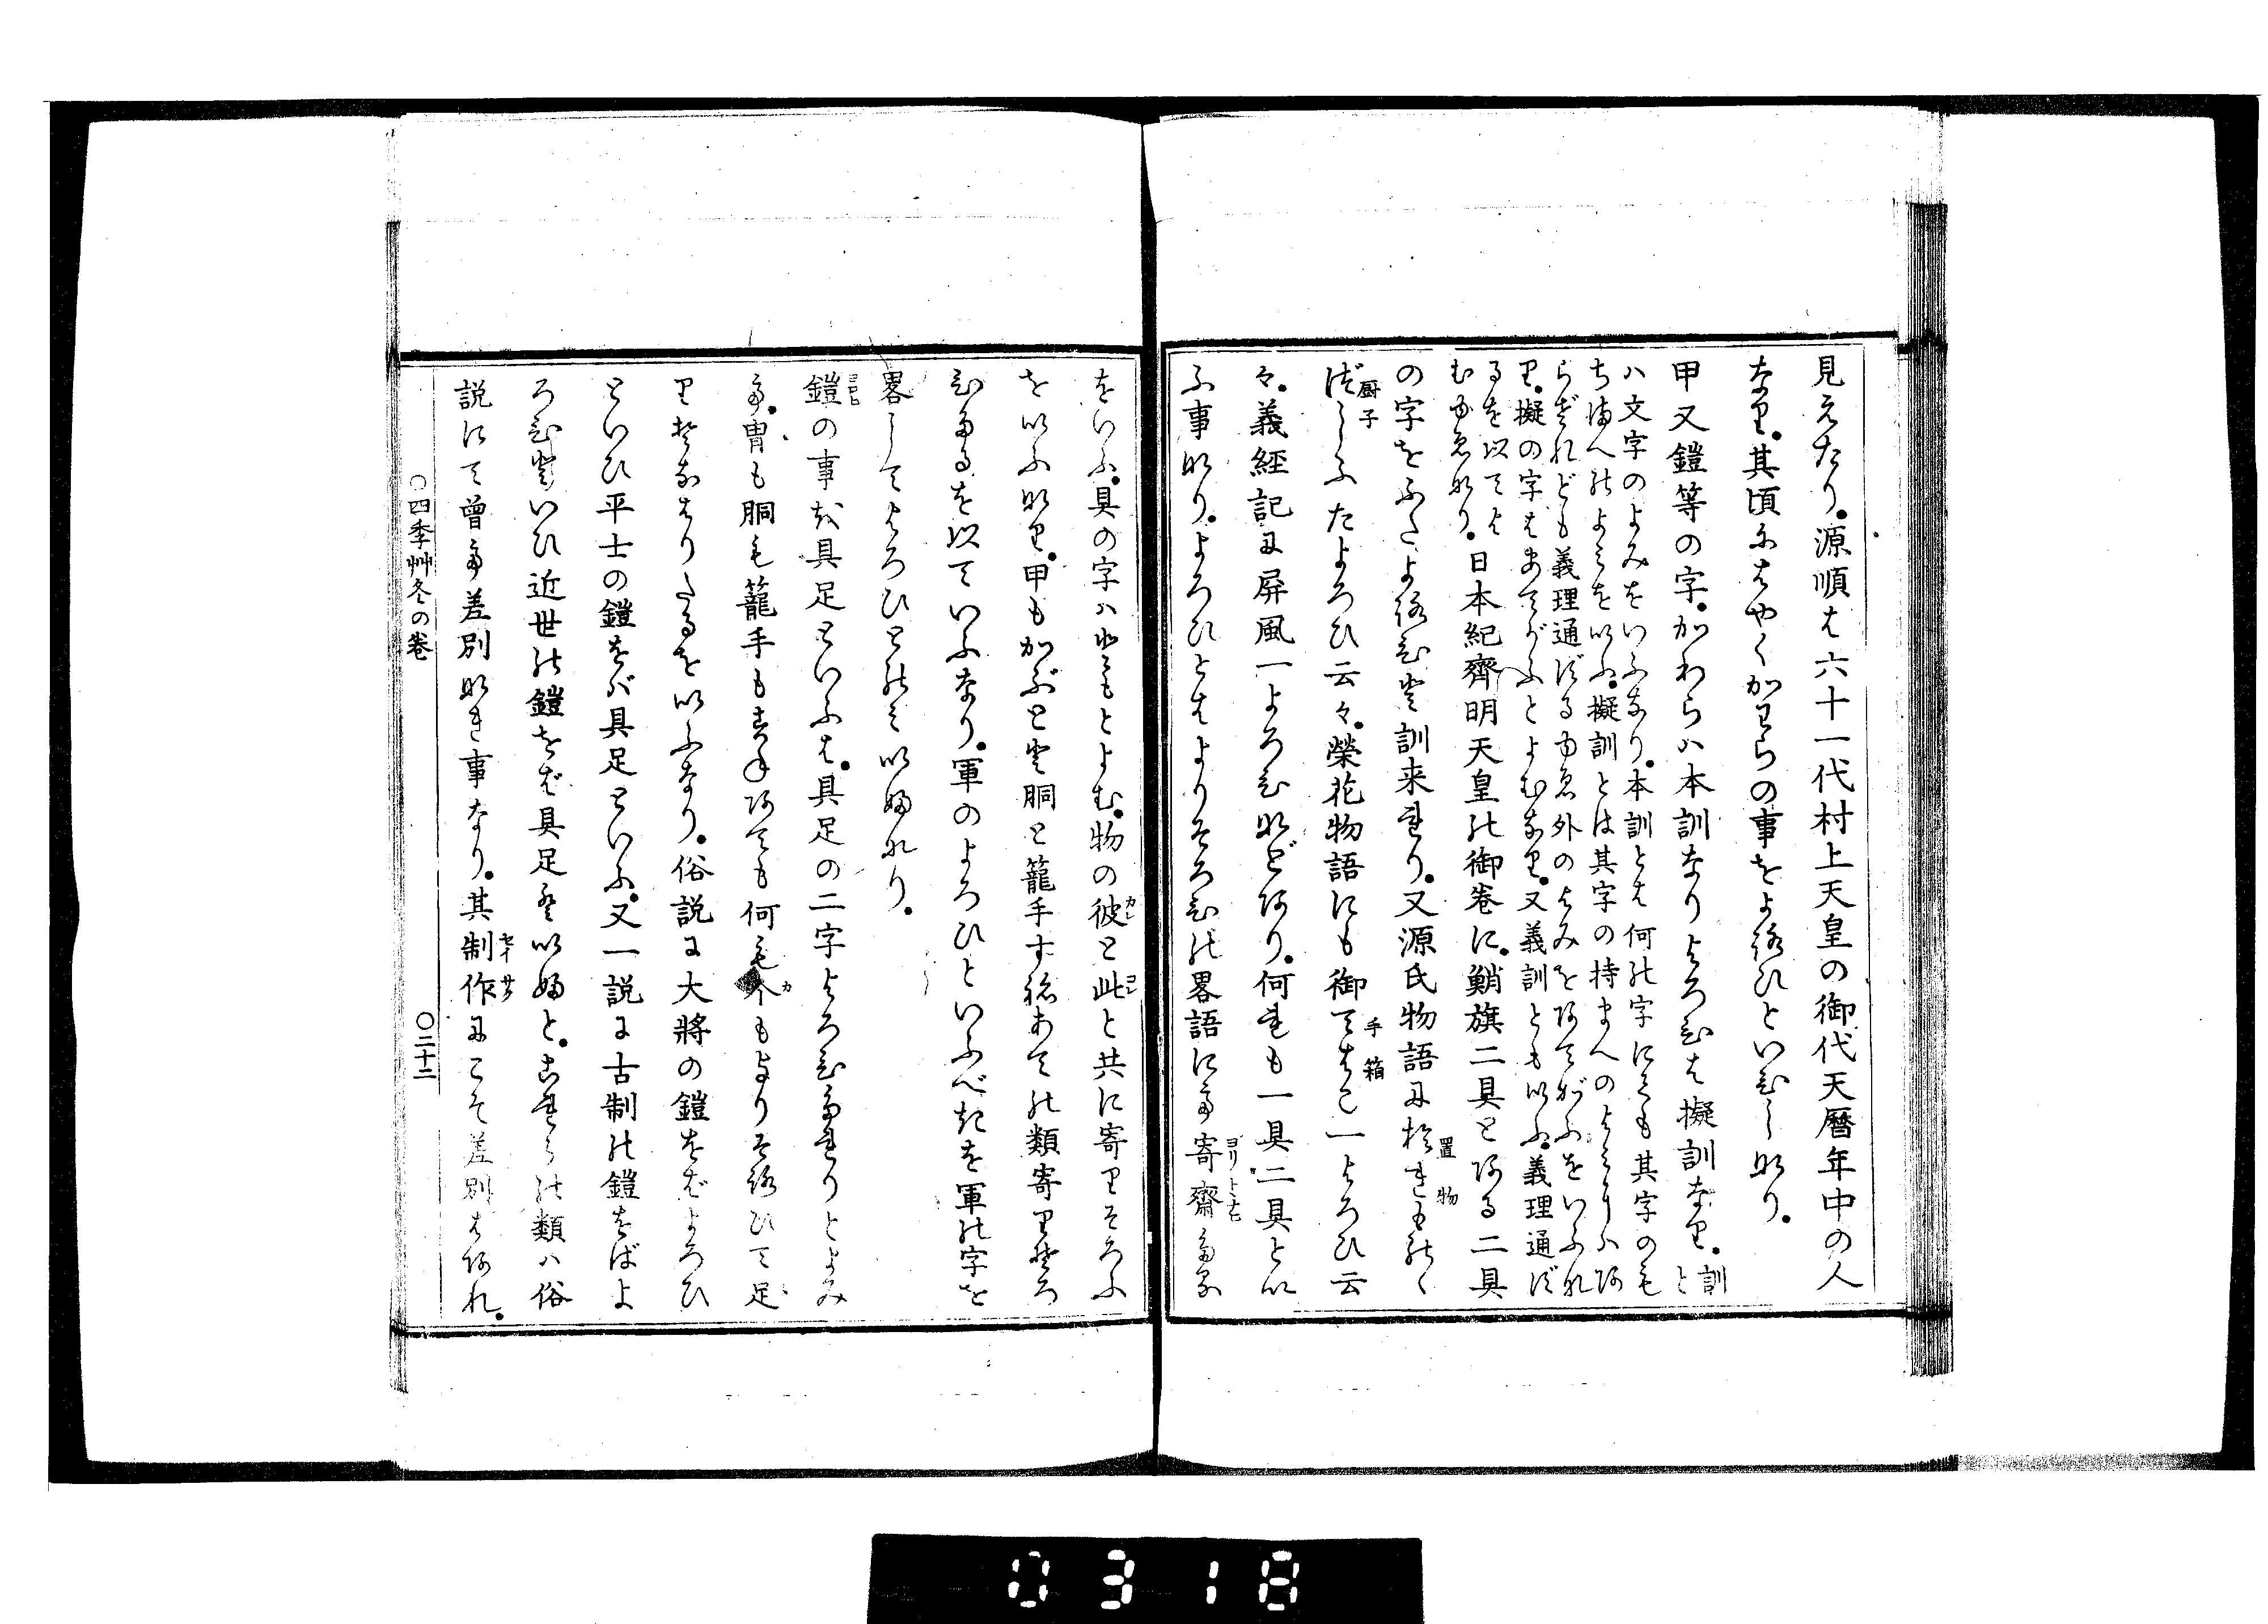 見えたり。源順は六十一代村上天皇の御代天暦年中の人
なり。其頃にはやくかわらの事をよろひといひしなり。
甲又鎧等の字。かわらハ本訓なりよろひは擬訓なり。訓と
ハ文字のよみをいふなり。本訓とは何の字にても其字のも
ちまへのよミをいふ。擬訓とは其字の持まへのよミにハあ
らざれども義理通ずるゆゑ外のよみをあてがふをいふな
り。擬の字はあてがふとよむなり。又義訓とも いふ。義理通ず
るを以てよ
むゆゑなり。日本紀齊明天皇の御巻に。鮹旗二具とある二具
の字をふたよろひと訓来れり。又源氏物語におきもの
置物
づしふたよろひ云々。榮花物語にも御てはこ一よろひ云
厨子
手箱
々。義經記に屏風一よろひなどあり。何れも一具二具とい
ふ事なり。よろひとはよりそろひの畧語にて寄齋たる
ヨリトヽモヒ
をいふ。具の字ハともともよむ。物の彼と此と共に寄りそろふ
カレ
コレ
をいふなり。甲もかぶと胴と籠手すねあての類寄りそろ
ひたるを以ていふなり。軍のよろひといふべきを軍の字を
畧してよろひとのミいふなり。
鎧の事を具足といふは。具足の二字よろひたれりとよみ
ヨロヒ
て。冑も胴も籠手もすねあても何も不もよりそろひて足
カ
りそなはりたるをいふなり。俗説に大將の鎧をばよろひ
といひ平士の鎧をバ具足といふ。又一説に古制の鎧をばよ
ろひといひ近世の鎧をば具足といふと。これらの類ハ俗
説にて曾て差別なき事なり。其制作にこそ差別はあれ。
セイサク
○四季艸冬の巻
○三十二
0318